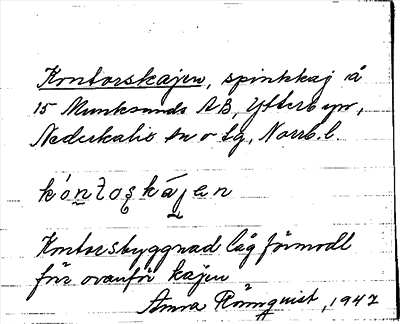 Kontorskajen, spinkkaj å
15 Munksunds AB, Ytterbyn,
Nederkalix sn o tg, Norrb. l.
kón̠toʂkájen
Kontorsbyggnad låg förmodl
för ovanför kajen
Anna Rönnquist, 1947